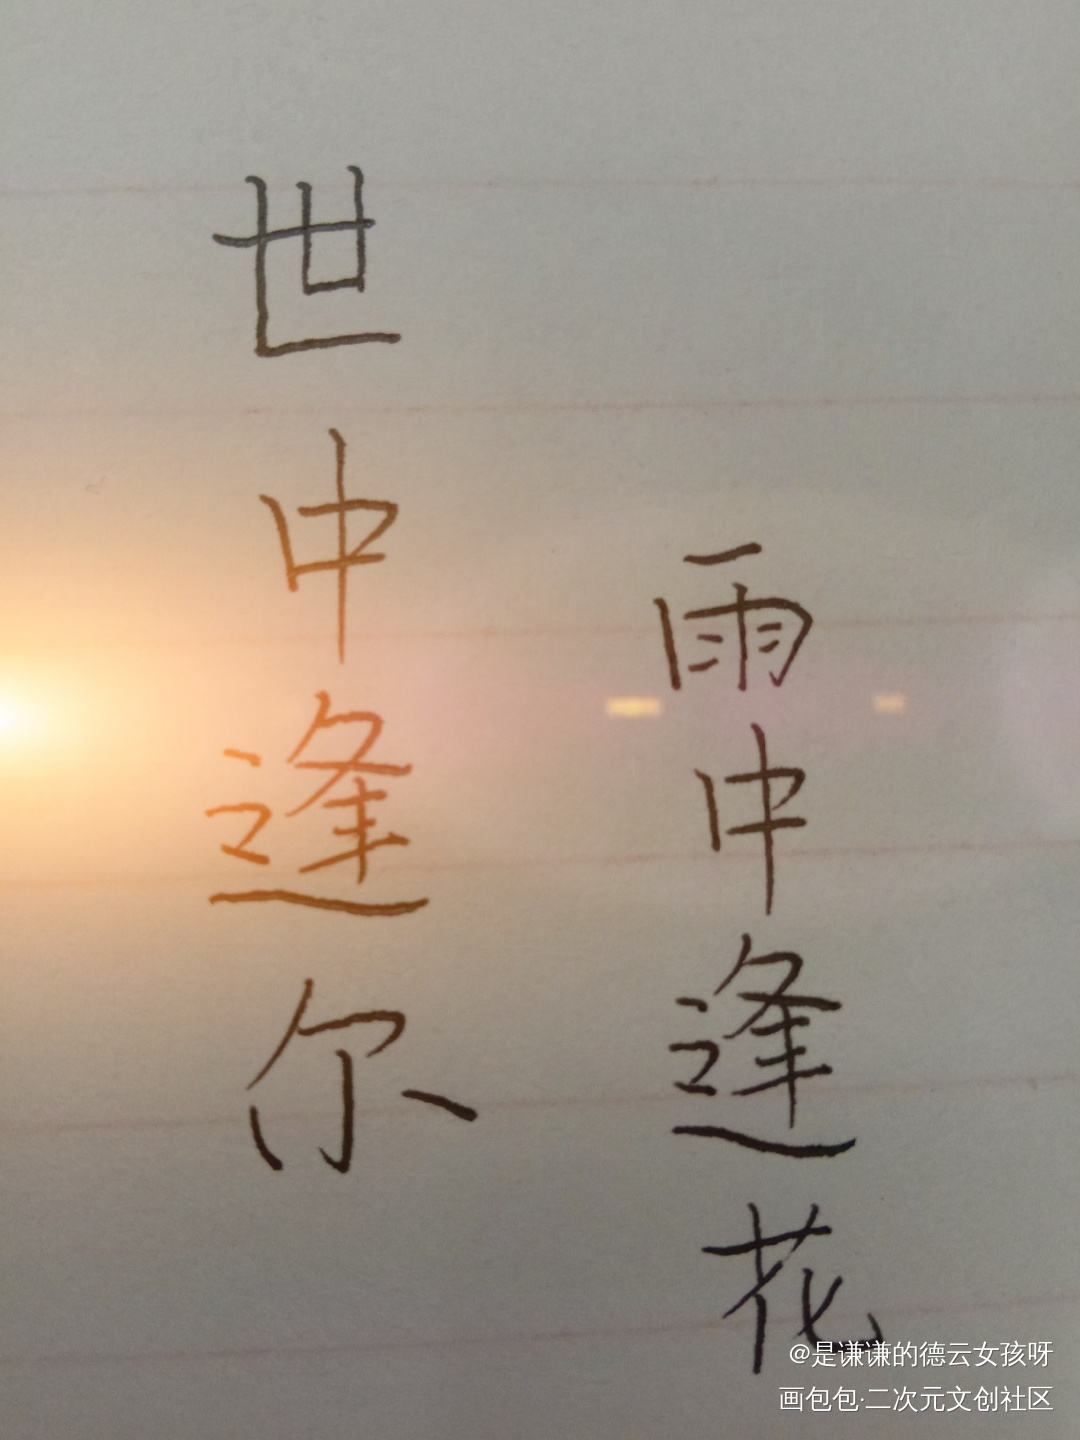 世中逢尔
雨中逢花
@是谦谦的德云女孩呀
画包包·二次元文创社区